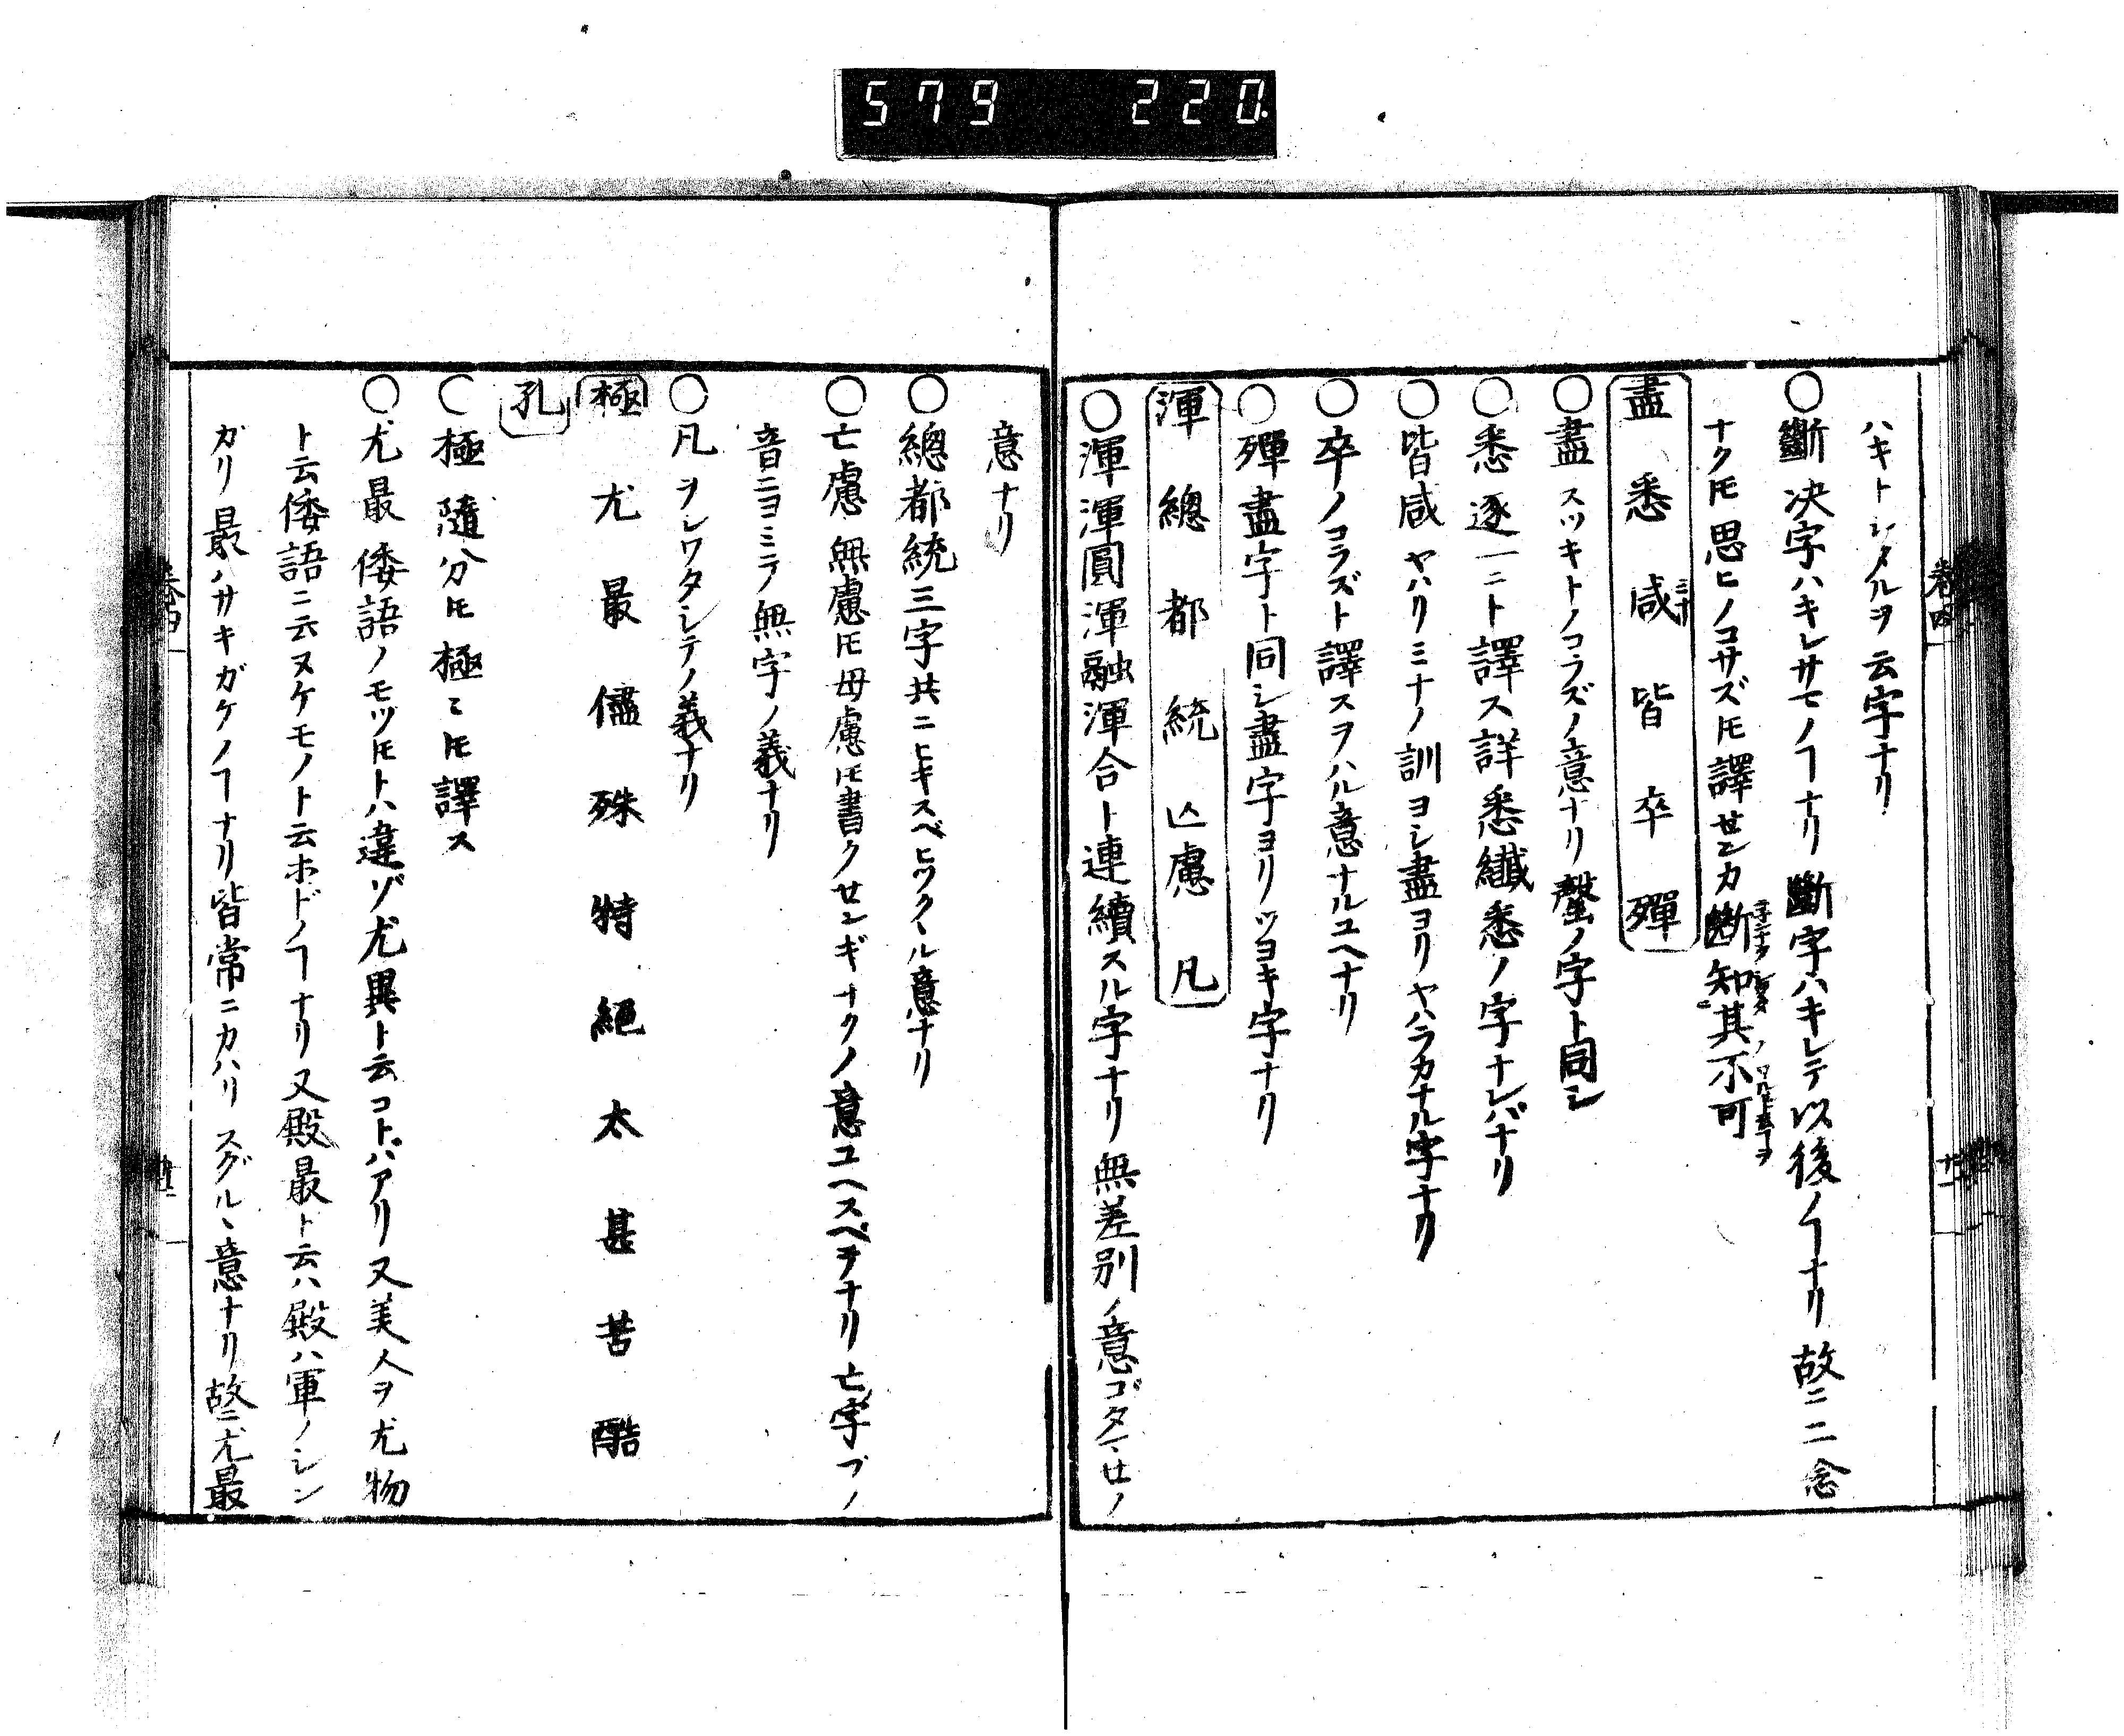 579 220
卷四
ハキトシタルヲ云字ナリ
○斷 决字ハキレサマノヿナリ斷字ハキレテ以後ノヿナリ故ニ二念
ナク𪜈思ヒノコサズ𪜈譯センカ斷知其不可
盡悉咸皆卒殫
○盡 スツキトノコラズノ意ナリ罄ノ字ト同シ
○悉 逐一ニト譯ス詳悉纎悉ノ字ナレバナリ
○皆咸 ヤハリミナノ訓ヨシ盡ヨリヤハラカナル字ナリ
○卒 ノコラズト譯スヲハル意ナルユヘナリ
○殫 盡字ト同シ盡字ヨリツヨキ字ナリ
渾總都統亡慮凡
○渾 渾圓渾融渾合ト連續スル字ナリ無差別ノ意ゴタマセノ
意ナリ
○總都統 三字共ニヒキスベヒツクヽル意ナリ
○亡慮 無慮𪜈毋慮𪜈書クセンギナクノ意ユヘスベヲナリ亡字ブノ
音ニヨミテ無字ノ義ナリ
○凡 ヲシワタシテノ義ナリ
極尤最儘殊特絕太甚苦酷
孔
○極 隨分𪜈極ミ𪜈譯ス
○尤最 倭語ノモツ𪜈トハ違ゾ尤異ト云コトバアリ又美人ヲ尤物
ト云倭語ニ云ヌケモノト云ホドノヿナリ又殿最ト云ハ殿ハ軍ノシン
ガリ最ハサキガケノヿナリ皆常ニカハリスグルヽ意ナリ故ニ尤最
卷四